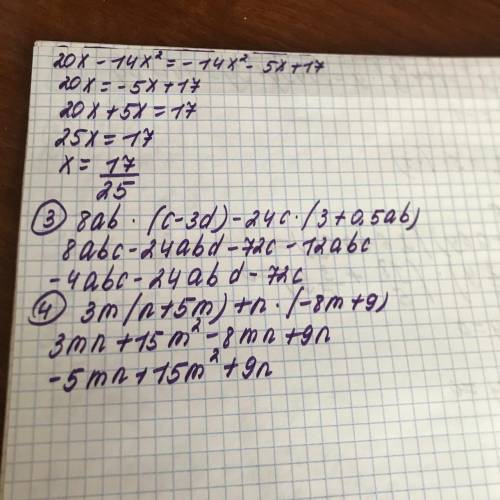 20x - 14x² = - 14x² - 5x + 17
20x = -5x + 17
20x + 5x = 17
25x = 17
x = 17/25
③ 8ab · (c - 3d) - 24c · (3 + 0,5ab)
8abc - 24abd - 72c - 12abc
-4abc - 24abd - 72c
④ 3m (n + 5m) + n · (-8m + 9)
3mn + 15m² - 8mn + 9n
-5mn + 15m² + 9n